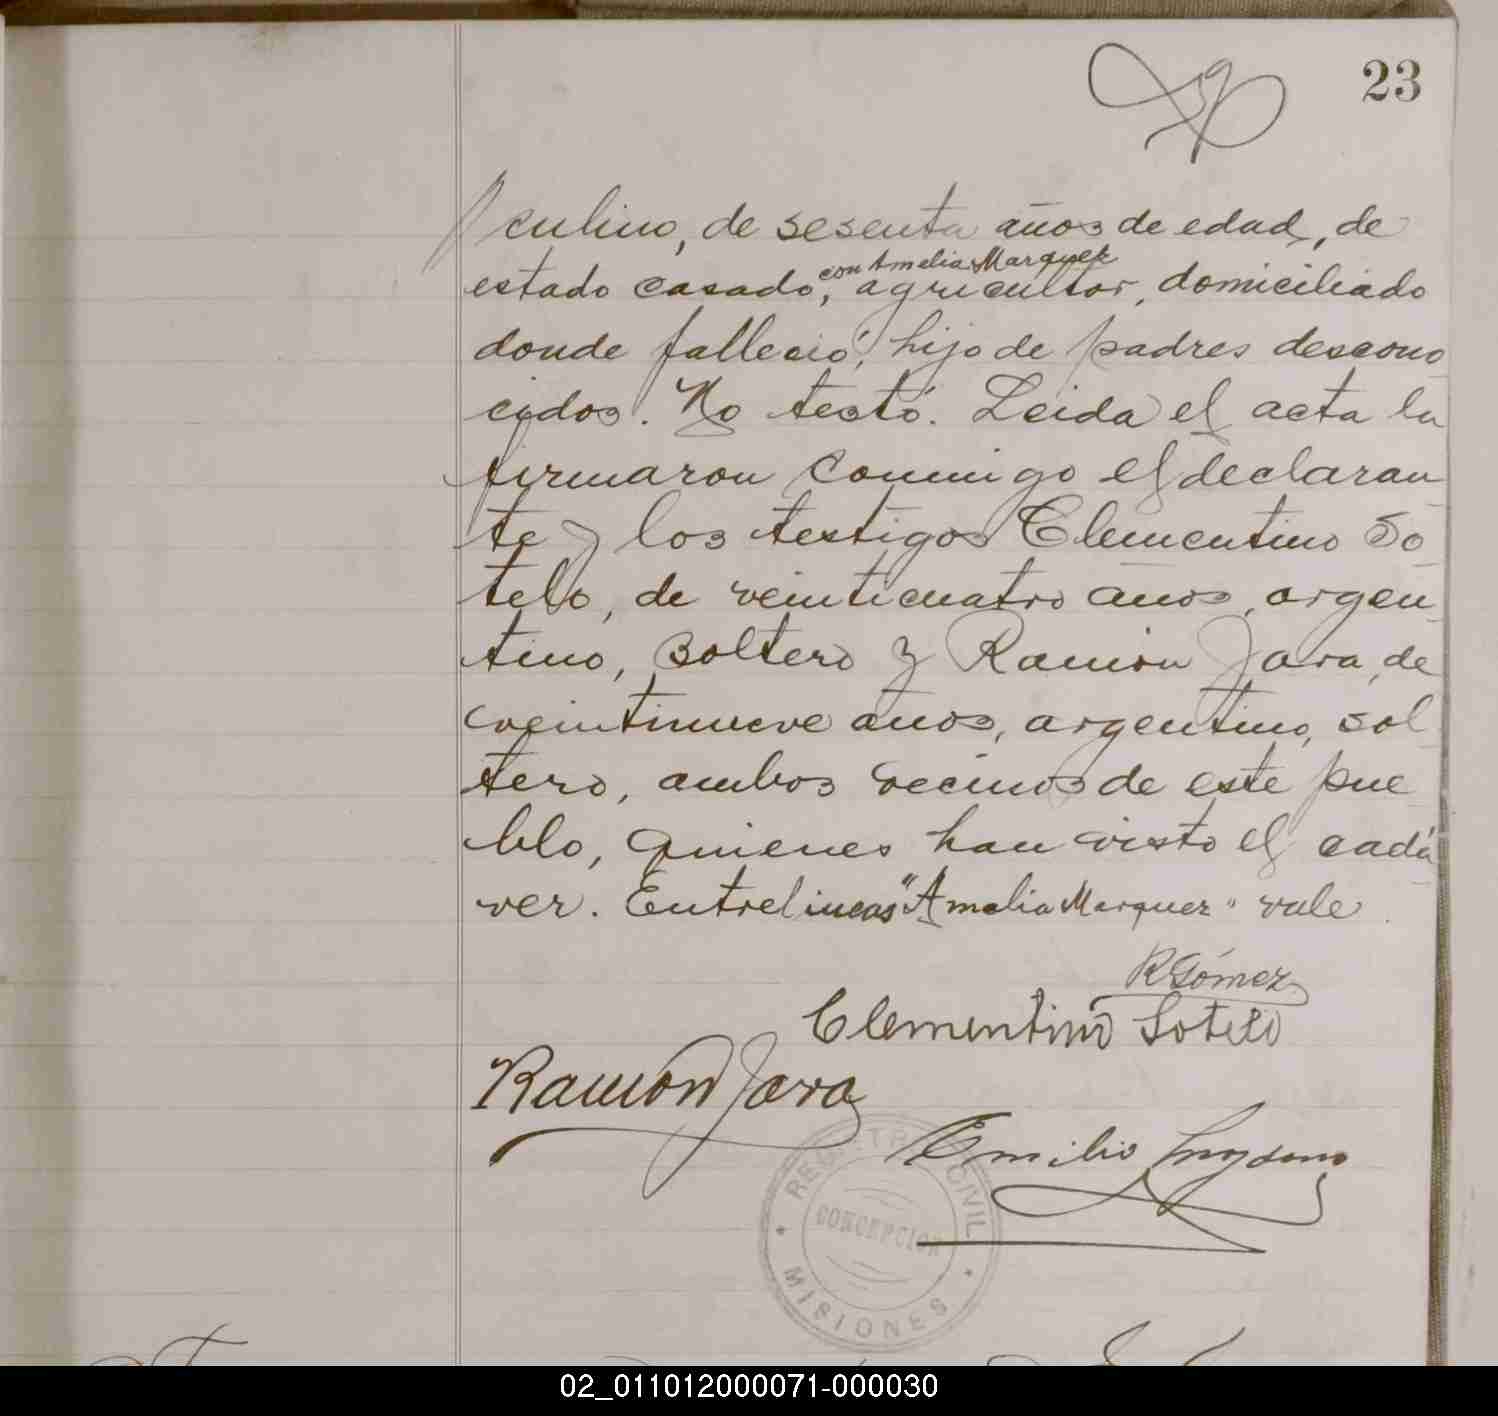 23
culino, de sesenta años de edad, de
con Amelia Marquez
estado casado, agricultor, domiciliado
donde falleció, hijo de padres descono
cidos. No testó. Leida el acta la
firmaron conmigo el declaran
te y los testigos Clementino So
telo, de veinticuatro años, argen
tino, soltero y Ramón Jara, de
veintinueve años, argentino, sol
tero, ambos vecinos de este pue
blo, quienes han visto el cadá
ver. Entrelineas "Amelia Marquez" vale
RGómez
Clementino Sotelo
Ramón Jara
Emilio
REGISTRO CIVIL
CONCEPCION
MISIONES
02_011012000071-000030